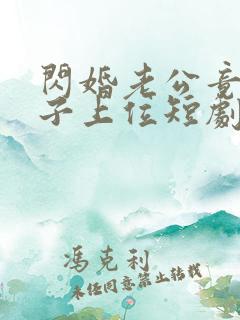 閃婚老公竟
子上位短劇
馮克利
未經同意禁止轉載